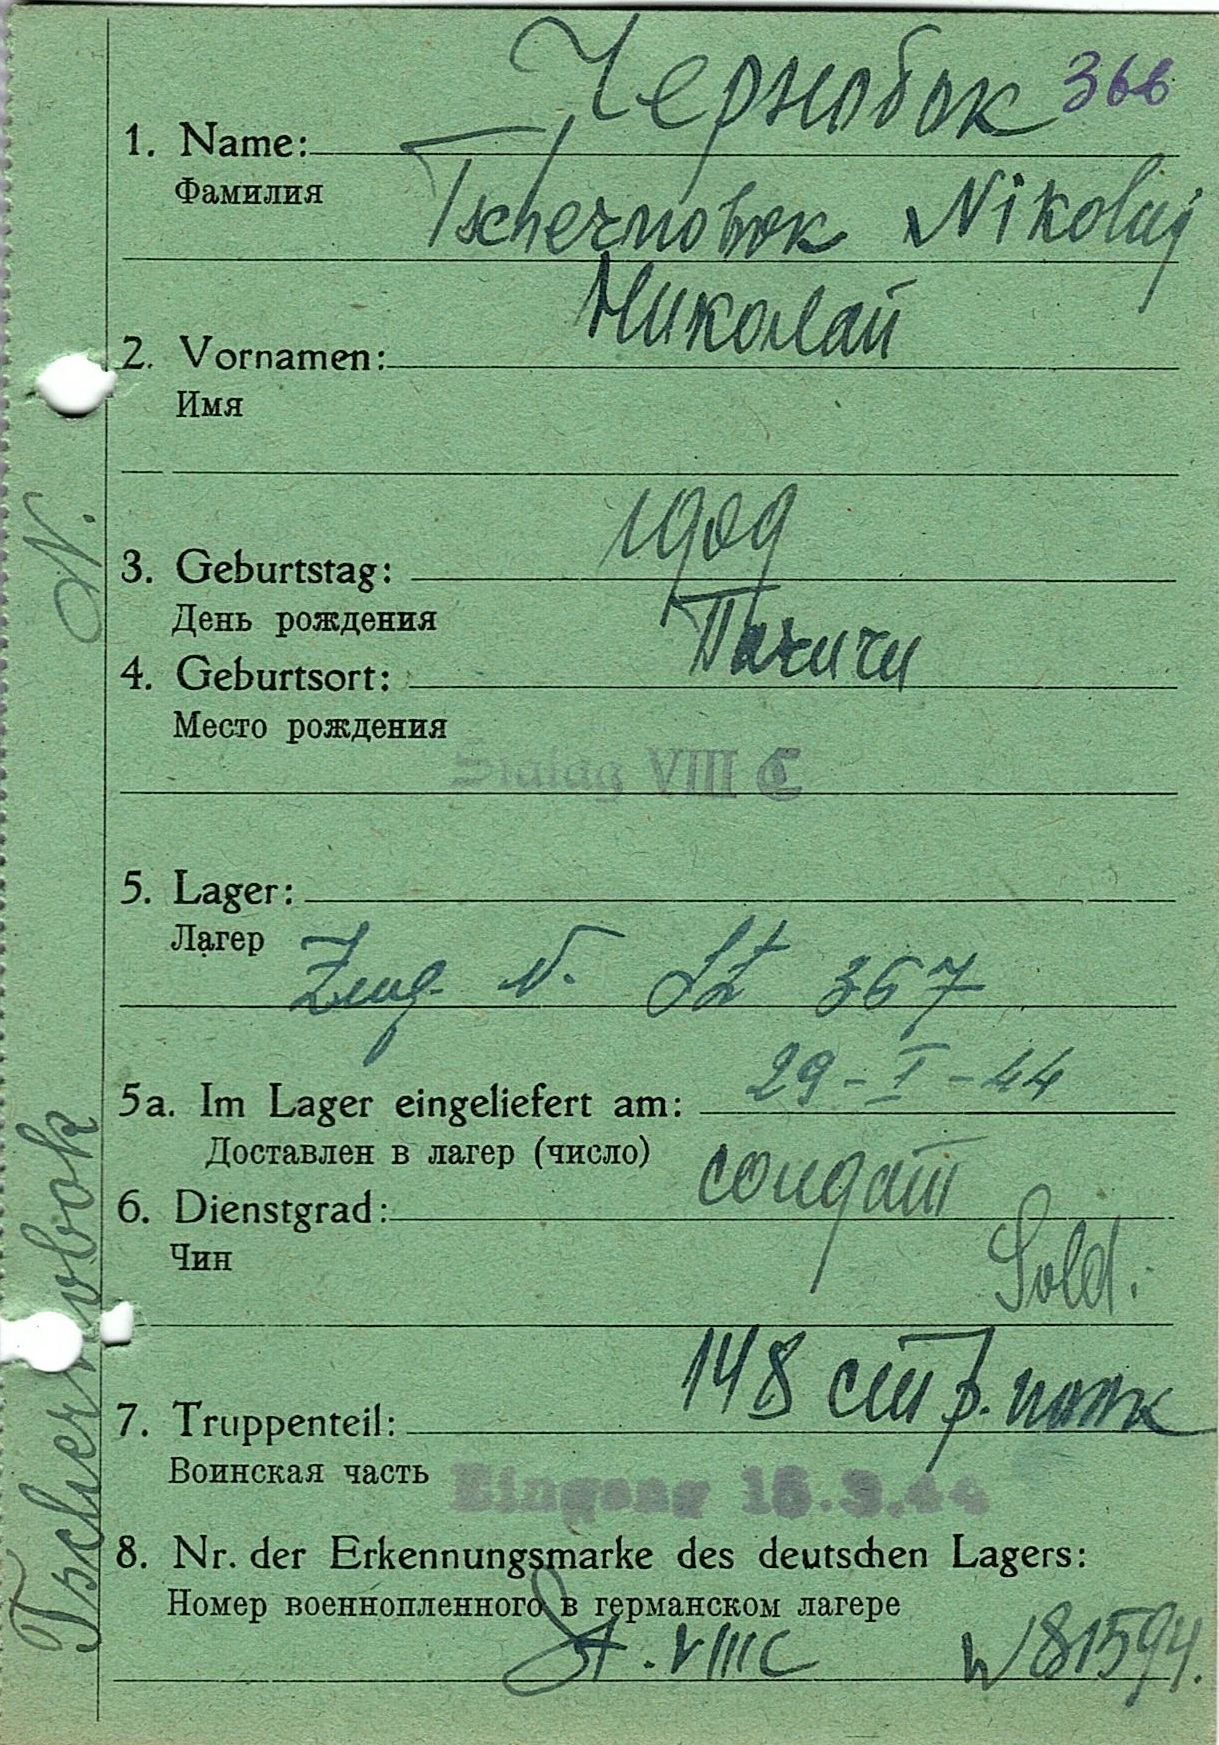 Чернобок 366
1. Name:
Фамилия
Tschernobok Nikolaj
Николай
2. Vornamen:
Имя
1909
3. Geburtstag:
День рождения
4. Geburtsort:
Место рождения
Stalag VIII C
5. Lager:
Лагер
Zug. v. St 367
29-I-44
5a. Im Lager eingeliefert am:
Доставлен в лагер (число)
солдат
6. Dienstgrad:
Чин
Sold.
148 стр. полк
7. Truppenteil:
Воинская часть
Eingang 18.3.44
8. Nr. der Erkennungsmarke des deutschen Lagers:
Номер военнопленного в германском лагере
St. VIIIC 81594.
Tschernobok N.